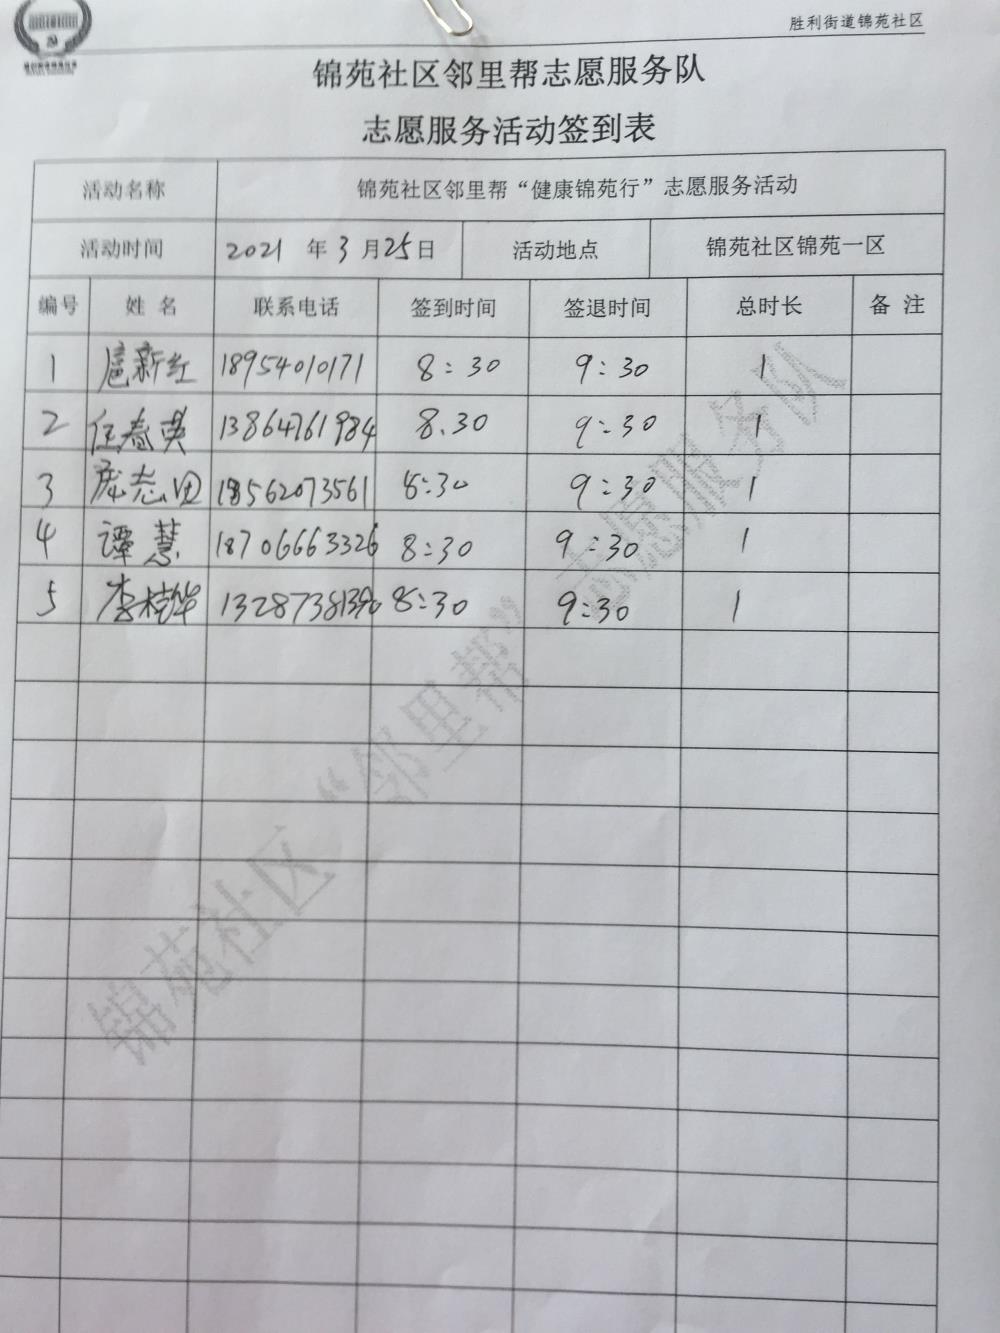 胜利街道锦苑社区
锦苑社区邻里帮志愿服务队
志愿服务活动签到表
活动名称 锦苑社区邻里帮“健康锦苑行”志愿服务活动
活动时间 2021 年 3 月 25 日 活动地点 锦苑社区锦苑一区
编号 姓 名 联系电话 签到时间 签退时间 总时长 备 注
1 扈新红 18954010171 8:30 9:30 1
2 任春英 13864761984 8.30 9:30 1
3 志田 18562073561 8:30 9:30 1
4 谭慧 18706663326 8:30 9:30 1
5 李桂华 13287381390 8:30 9:30 1
锦苑社区“邻里帮”志愿服务队